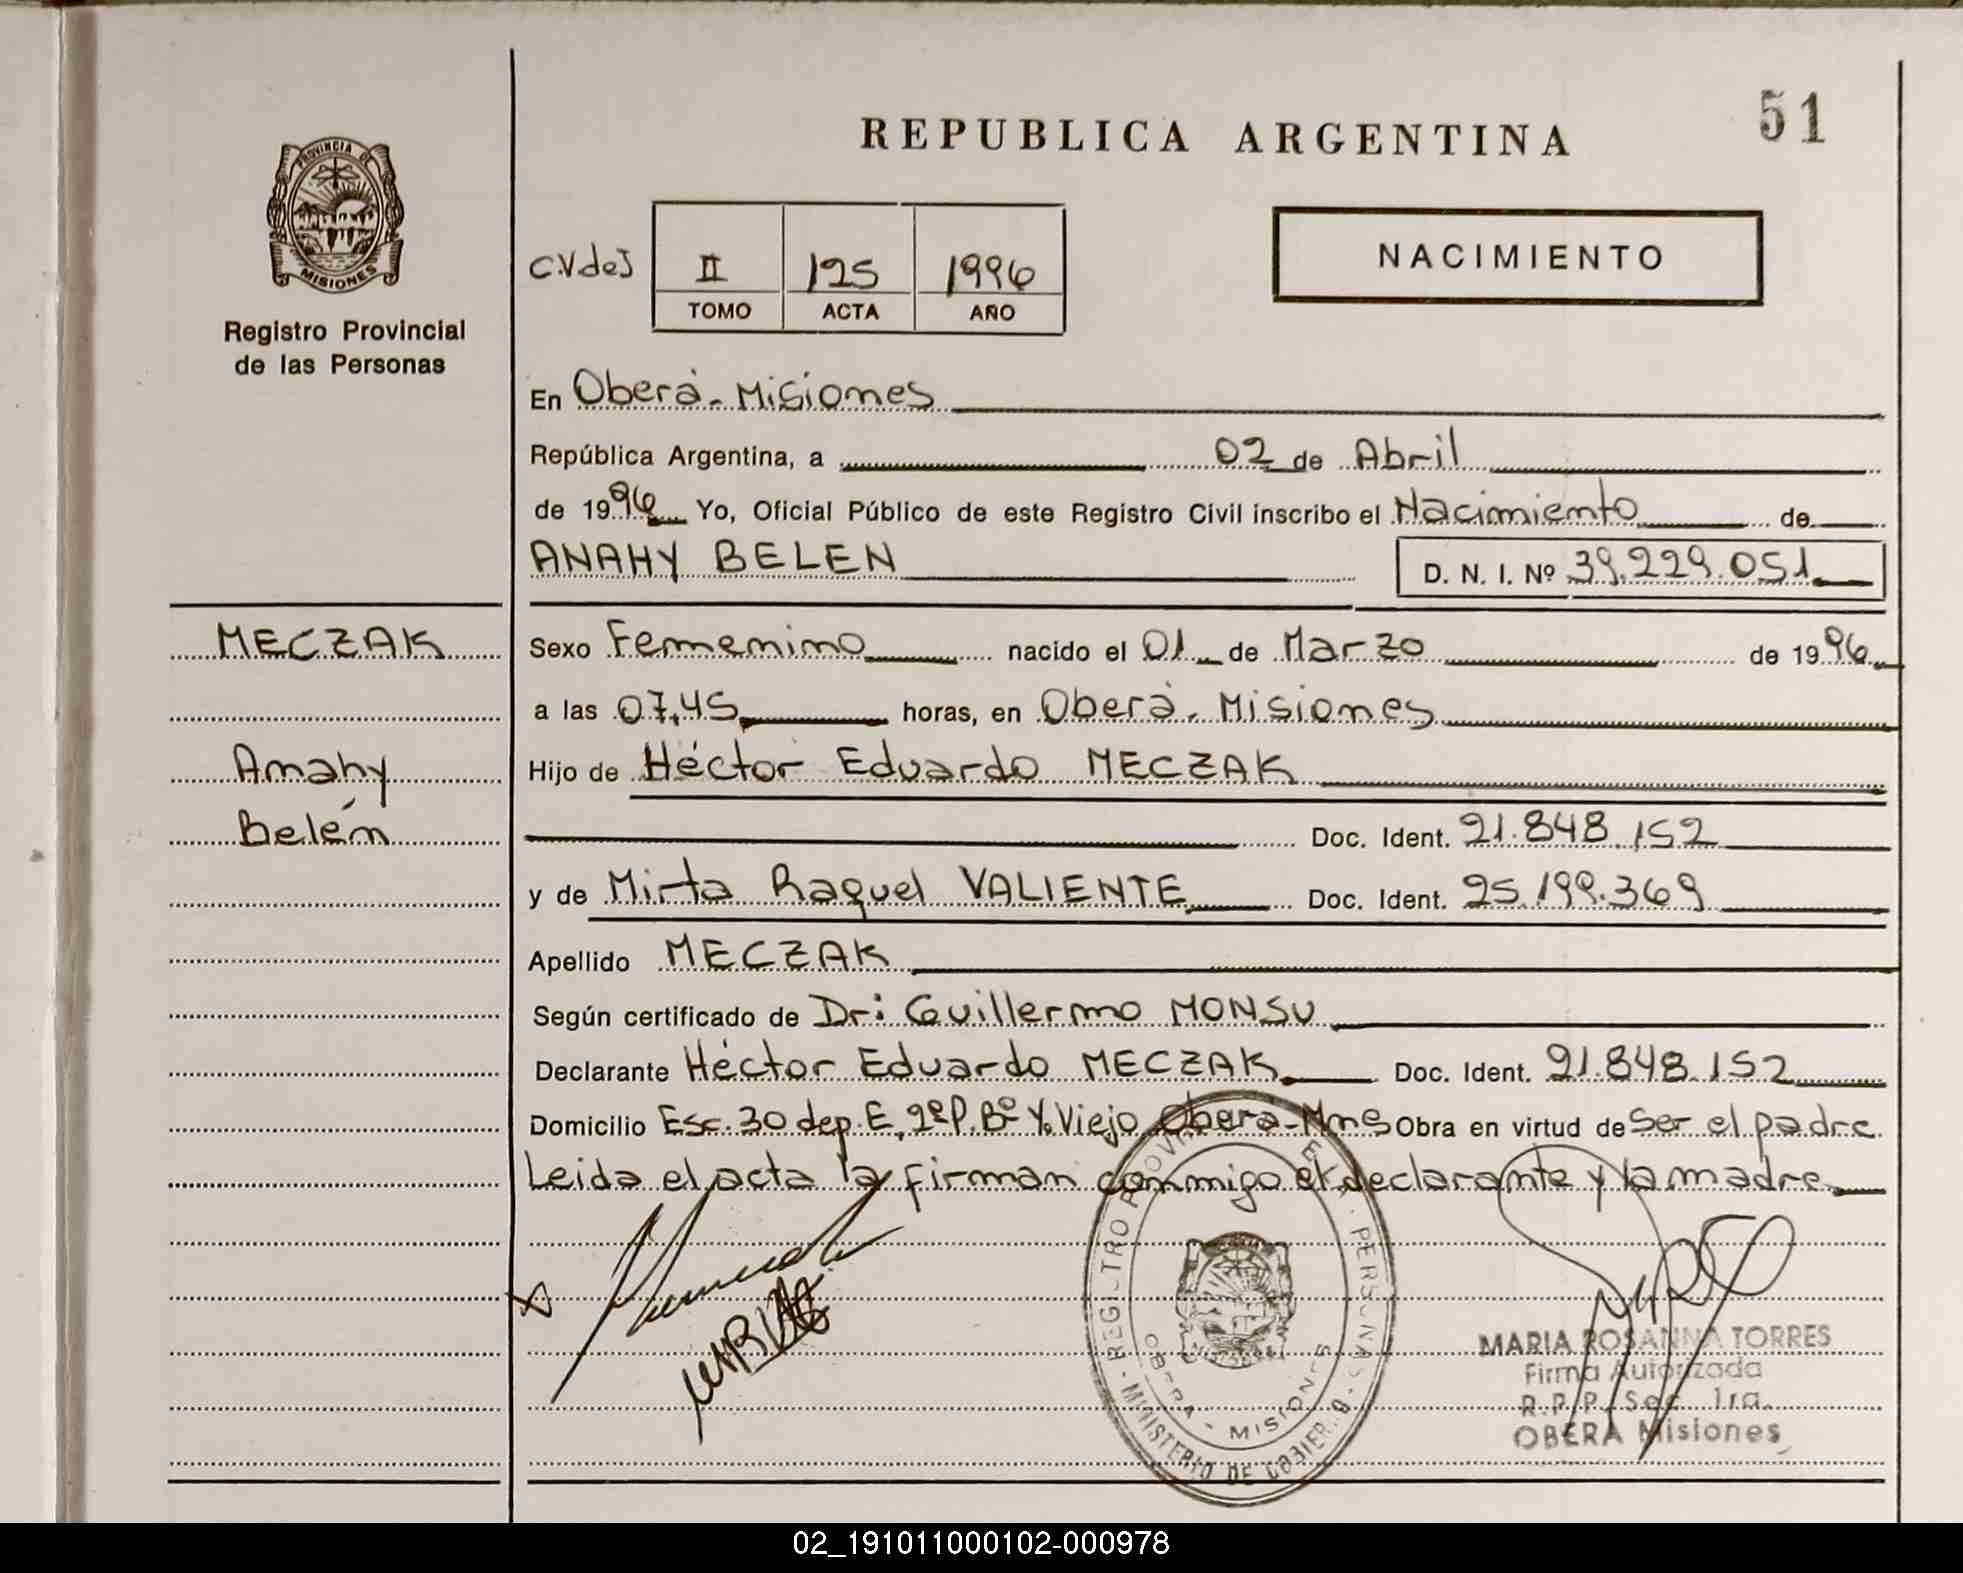 REPUBLICA ARGENTINA
51
PROVINCIA DE
MISIONES
Registro Provincial
de las Personas
C.V de J
II 125 1996
TOMO ACTA AÑO
NACIMIENTO
En Oberá - Misiones
República Argentina, a 02 de Abril
de 1996 Yo, Oficial Público de este Registro Civil inscribo el Nacimiento de
ANAHY BELEN D. N. I. Nº 39.229.051
MECZAK
Anahy
Belén
Sexo Femenino nacido el 01 de Marzo de 1996
a las 07,45 horas, en Oberá - Misiones
Hijo de Héctor Eduardo MECZAK
Doc. Ident. 21.848.152
y de Mirta Raquel VALIENTE Doc. Ident. 25.199.369
Apellido MECZAK
Según certificado de Dr: Guillermo MONSU
Declarante Héctor Eduardo MECZAK Doc. Ident. 21.848.152
Domicilio Esc. 30 dep. E, 2º P. Bº Y. Viejo Oberá - Mnes Obra en virtud de ser el padre
Leida el acta la firman conmigo el declarante y la madre
REGISTRO PROVINCIAL DE PERSONAS
OBERA - MISIONES
MINISTERIO DE GOBIERNO
MARIA ROSANNA TORRES
Firma Autorizada
R.P.P. Sec. 1ra.
OBERA Misiones
02_191011000102-000978